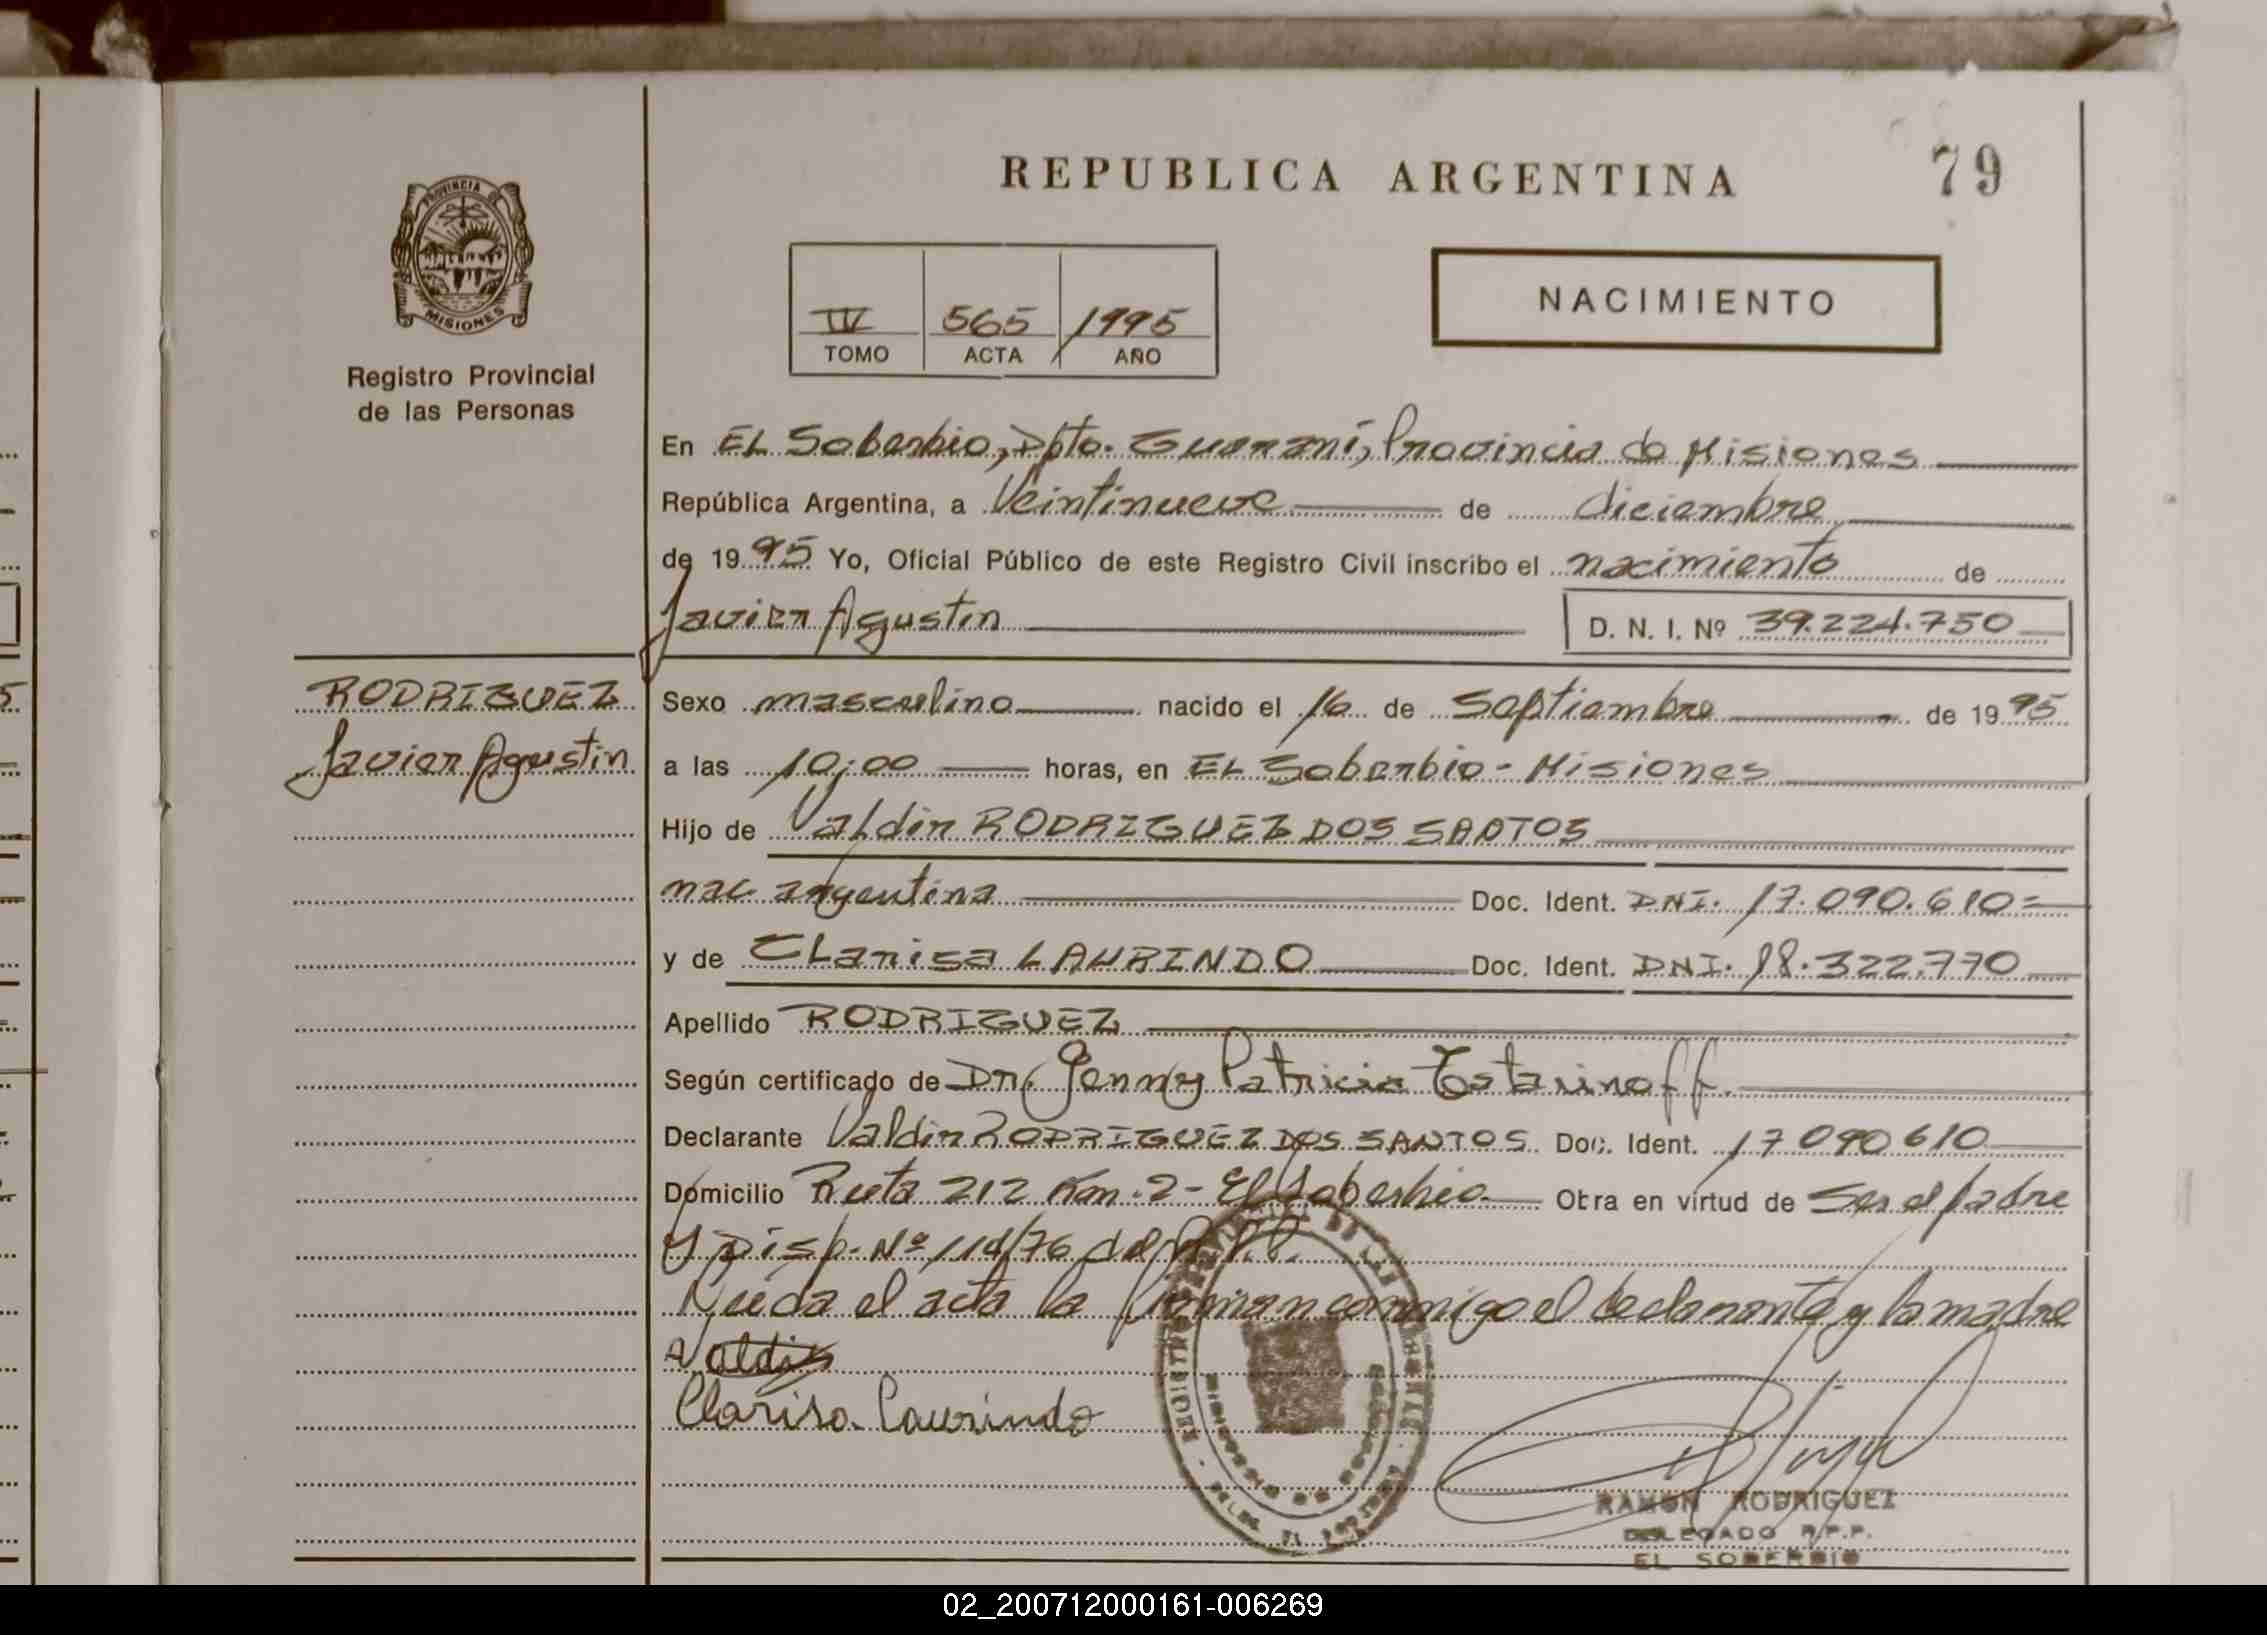 REPUBLICA ARGENTINA
79
PROVINCIA DE
MISIONES
Registro Provincial
de las Personas
IV 565 1995
TOMO ACTA AÑO
NACIMIENTO
En EL Soberbio, Dpto. Guaraní, Provincia de Misiones
República Argentina, a Veintinueve de diciembre
de 1995 Yo, Oficial Público de este Registro Civil inscribo el nacimiento de
Javier Agustin D. N. I. Nº 39.224.750
RODRIGUEZ
Javier Agustin
Sexo masculino nacido el 16 de Septiembre de 1995
a las 10:00 horas, en EL Soberbio - Misiones
Hijo de Valdir RODRIGUEZ DOS SANTOS
nac. argentina Doc. Ident. DNI. 17.090.610=
y de CLarisa LAURINDO Doc. Ident. DNI. 18.322.770
Apellido RODRIGUEZ
Según certificado de Dr. Jenny Patricia
Declarante Valdir RODRIGUEZ DOS SANTOS Doc. Ident. 17090610
Domicilio Ruta 212 Km. 2 - El Soberbio Obra en virtud de Ser el padre
y Disp. Nº 114/76 del R.P.P.
Leida el acta la firman conmigo el declarante y la madre
Valdir
Clarisa Laurindo
RAMON RODRIGUEZ
DELEGADO R.P.P.
EL SOBERBIO
02_200712000161-006269